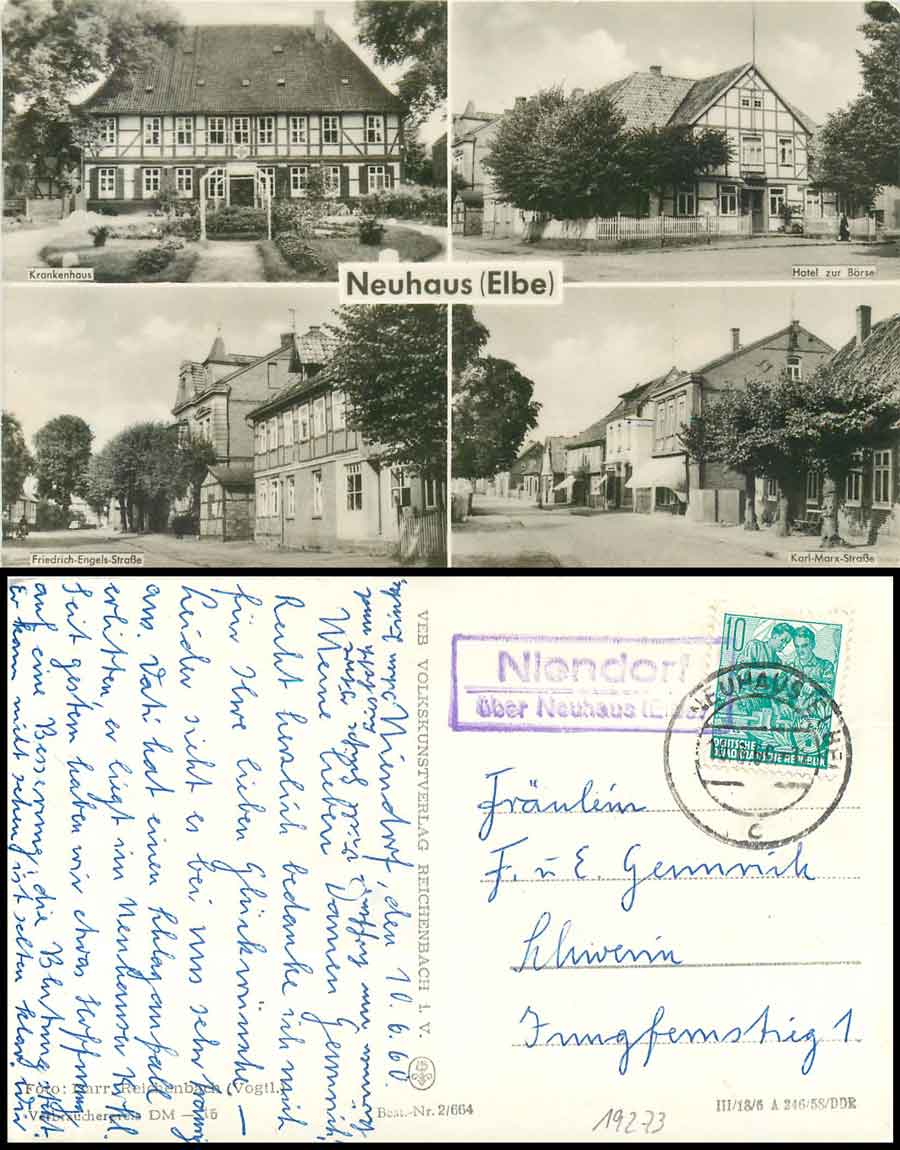 Krankenhaus
Hotel zur Börse
Neuhaus (Elbe)
Friedrich-Engels-Straße
Karl-Marx-Straße
Niendorf, den 10. 6. 60.
Meine lieben Damen Gemnrich,
Recht herzlich bedanke ich mich
für Ihre lieben Glückwünsche. —
Leider sieht es bei uns sehr traurig
aus. Vati hat einen Schlaganfall
erlitten, er liegt im Neuhauser Krhs.
Seit gestern haben wir etwas Hoffnung
auf eine Besserung, die Blutung
Er kann nicht sehen, ist selten klar. Wir
VEB VOLKSKUNSTVERLAG REICHENBACH i. V.
Foto: Darr, Reichenbach (Vogtl.)
Verbraucherpreis DM —
Best.-Nr. 2/664
Niendorf
über Neuhaus (Elbe)
10
DEUTSCHE
DEMOKRATISCHE REPUBLIK
NEUHAUS
c
Fräulein
F. u E. Gemnrich
Schwerin
Jungfernstieg 1
III/18/6 A 246/58/DDR
19273